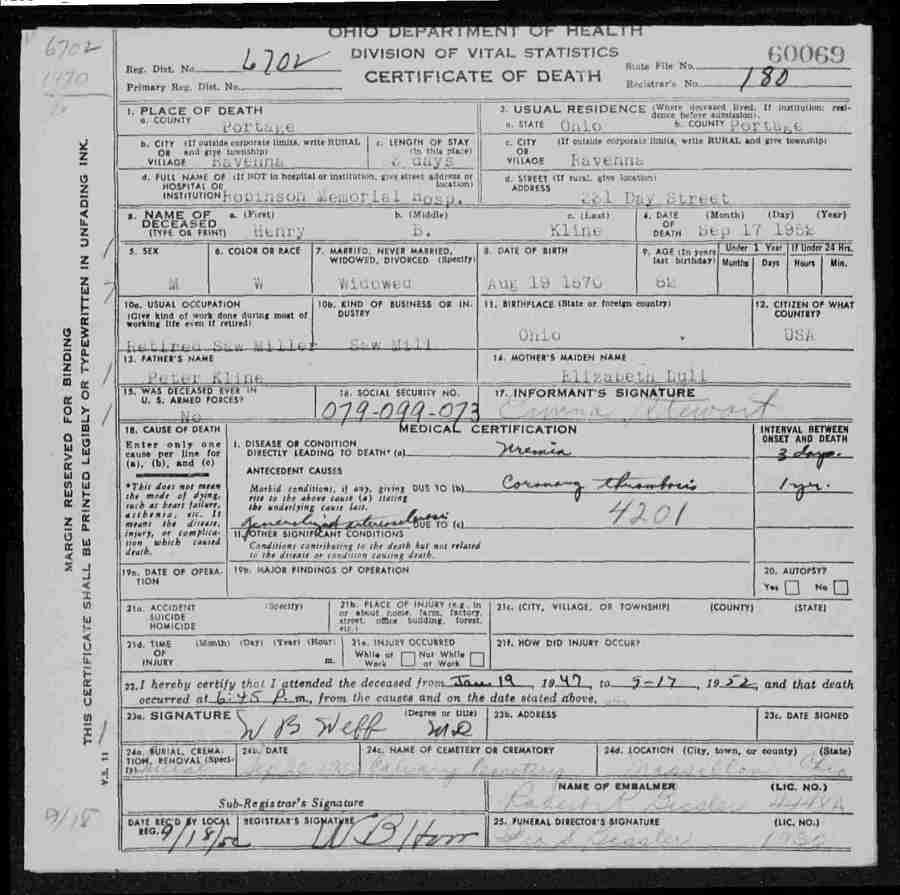 OHIO DEPARTMENT OF HEALTH
DIVISION OF VITAL STATISTICS
CERTIFICATE OF DEATH
6702
1470
Reg. Dist. No. 6702
Primary Reg. Dist. No.
State File No. 60069
Registrar's No. 180
MARGIN RESERVED FOR BINDING
THIS CERTIFICATE SHALL BE PRINTED LEGIBLY OR TYPEWRITTEN IN UNFADING INK.
V.S. 11
9/18
1. PLACE OF DEATH
a. COUNTY
Portage
2. USUAL RESIDENCE (Where deceased lived. If institution: residence before admission).
a. STATE Ohio b. COUNTY Portage
b. CITY (If outside corporate limits, write RURAL
OR and give township)
VILLAGE Ravenna
c. LENGTH OF STAY
(in this place)
days
c. CITY (If outside corporate limits, write RURAL and give township)
OR
VILLAGE Ravenna
d. FULL NAME OF (If NOT in hospital or institution, give street address or location)
HOSPITAL OR
INSTITUTION Robinson Memorial Hosp.
d. STREET (If rural, give location)
ADDRESS
231 Day Street
3. NAME OF DECEASED (TYPE OR PRINT)
a. (First) Henry
b. (Middle) B.
c. (Last) Kline
4. DATE OF DEATH (Month) (Day) (Year)
Sep 17 1952
5. SEX
M
6. COLOR OR RACE
W
7. MARRIED, NEVER MARRIED, WIDOWED, DIVORCED (Specify)
Widowed
8. DATE OF BIRTH
Aug 19 1870
9. AGE (In years last birthday)
82
Under 1 Year If Under 24 Hrs.
Months Days Hours Min.
10a. USUAL OCCUPATION
(Give kind of work done during most of working life even if retired)
Retired Saw Miller
10b. KIND OF BUSINESS OR INDUSTRY
Saw Mill
11. BIRTHPLACE (State or foreign country)
Ohio
12. CITIZEN OF WHAT COUNTRY?
USA
13. FATHER'S NAME
Peter Kline
14. MOTHER'S MAIDEN NAME
Elizabeth Dull
15. WAS DECEASED EVER IN U. S. ARMED FORCES?
No
16. SOCIAL SECURITY NO.
079-099-073
17. INFORMANT'S SIGNATURE
Emma Stewart
MEDICAL CERTIFICATION
18. CAUSE OF DEATH
Enter only one cause per line for (a), (b), and (c)
*This does not mean the mode of dying, such as heart failure, asthenia, etc. It means the disease, injury, or complication which caused death.
I. DISEASE OR CONDITION
DIRECTLY LEADING TO DEATH* (a) Uremia
INTERVAL BETWEEN ONSET AND DEATH
3 days.
ANTECEDENT CAUSES
Morbid conditions, if any, giving rise to the above cause (a) stating the underlying cause last.
DUE TO (b) Coronary thrombosis
1 yr.
4201
Generalized arteriosclerosis DUE TO (c)
II. OTHER SIGNIFICANT CONDITIONS
Conditions contributing to the death but not related to the disease or condition causing death.
19a. DATE OF OPERATION
19b. MAJOR FINDINGS OF OPERATION
20. AUTOPSY?
Yes No
21a. ACCIDENT SUICIDE HOMICIDE (Specify)
21b. PLACE OF INJURY (e.g., in or about home, farm, factory, street, office building, forest, etc.)
21c. (CITY, VILLAGE, OR TOWNSHIP) (COUNTY) (STATE)
21d. TIME OF INJURY (Month) (Day) (Year) (Hour) m.
21e. INJURY OCCURRED
While at Work Not While at Work
21f. HOW DID INJURY OCCUR?
22. I hereby certify that I attended the deceased from Jan 19, 1947 to 9-17, 1952, and that death
occurred at 6:45 P.m., from the causes and on the date stated above.
23a. SIGNATURE (Degree or title)
W B Webb MD
23b. ADDRESS
23c. DATE SIGNED
24a. BURIAL, CREMATION, REMOVAL (Specify)
Burial
24b. DATE
24c. NAME OF CEMETERY OR CREMATORY
Calvary Cemetery
24d. LOCATION (City, town, or county) (State)
Massillon Ohio
Sub-Registrar's Signature
NAME OF EMBALMER (LIC. NO.)
Robert R Gessler 4448A
DATE REC'D BY LOCAL REG.
9/18/52
REGISTRAR'S SIGNATURE
25. FUNERAL DIRECTOR'S SIGNATURE (LIC. NO.)
Gessler